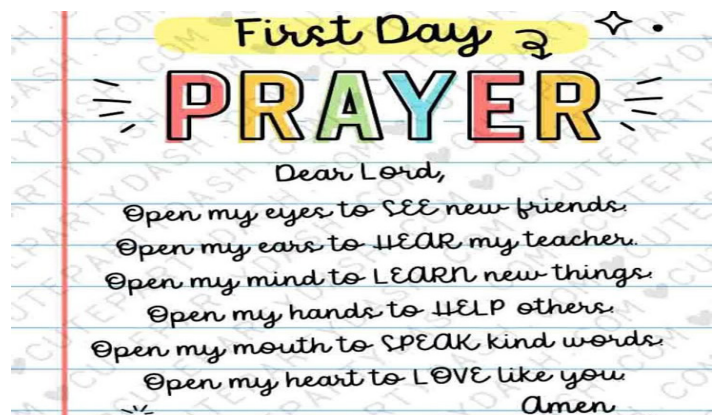 First Day
PRAYER
Dear Lord,
Open my eyes to SEE new friends.
Open my ears to HEAR my teacher.
Open my mind to LEARN new things.
Open my hands to HELP others.
Open my mouth to SPEAK kind words.
Open my heart to LOVE like you.
Amen
CUTEPARTYDASH.COM